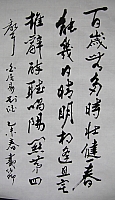 百歲無多時壯健一春
能幾日晴明相逢且莫
推辭醉聽唱陽關第四
聲 白居易 乙未春